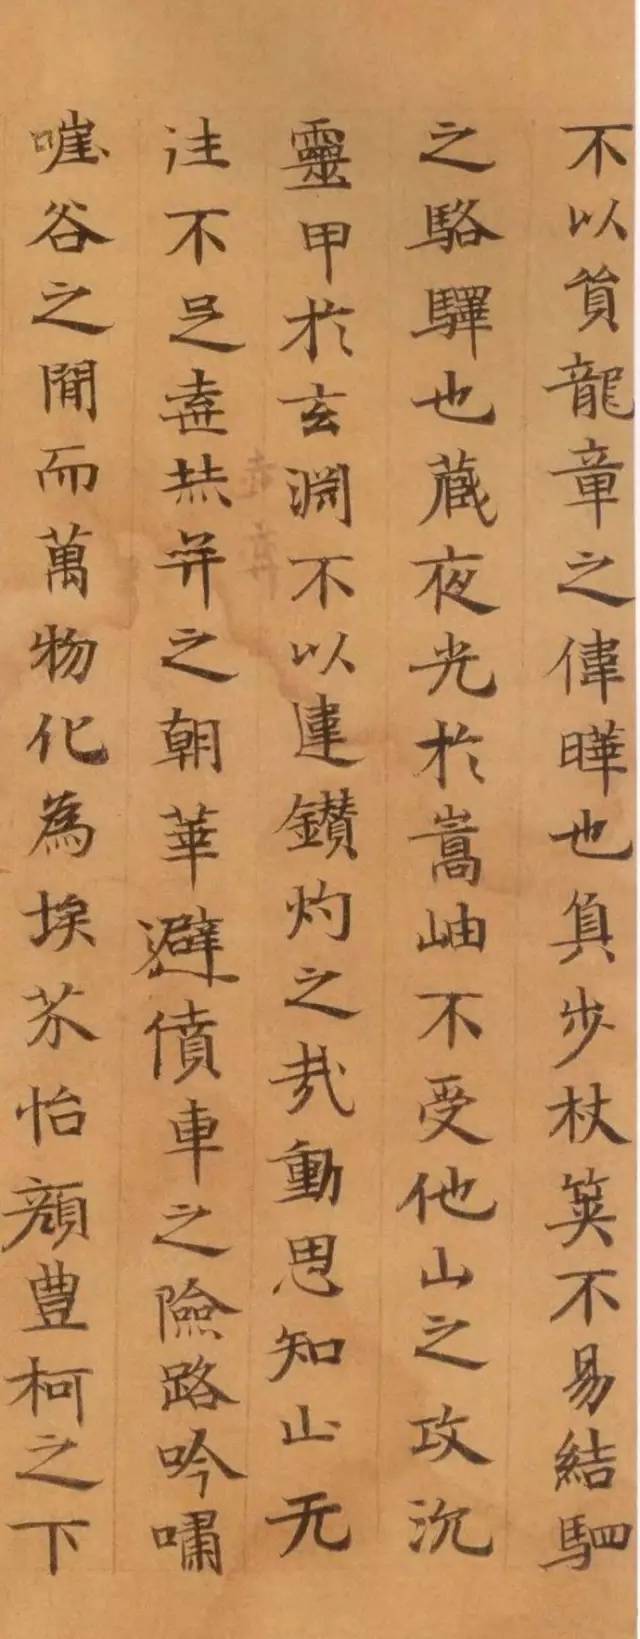 不以貿龍章之偉曄也負步杖筴不易結駟
之駱驛也蔵夜光於嵩岫不受他山之攻沉
靈甲於玄淵不以違鑽灼之烖動思知止无
往不足棄赫弈之朝華避僨車之險路吟嘯
嘊谷之閒而萬物化為埃芥怡顔豊柯之下